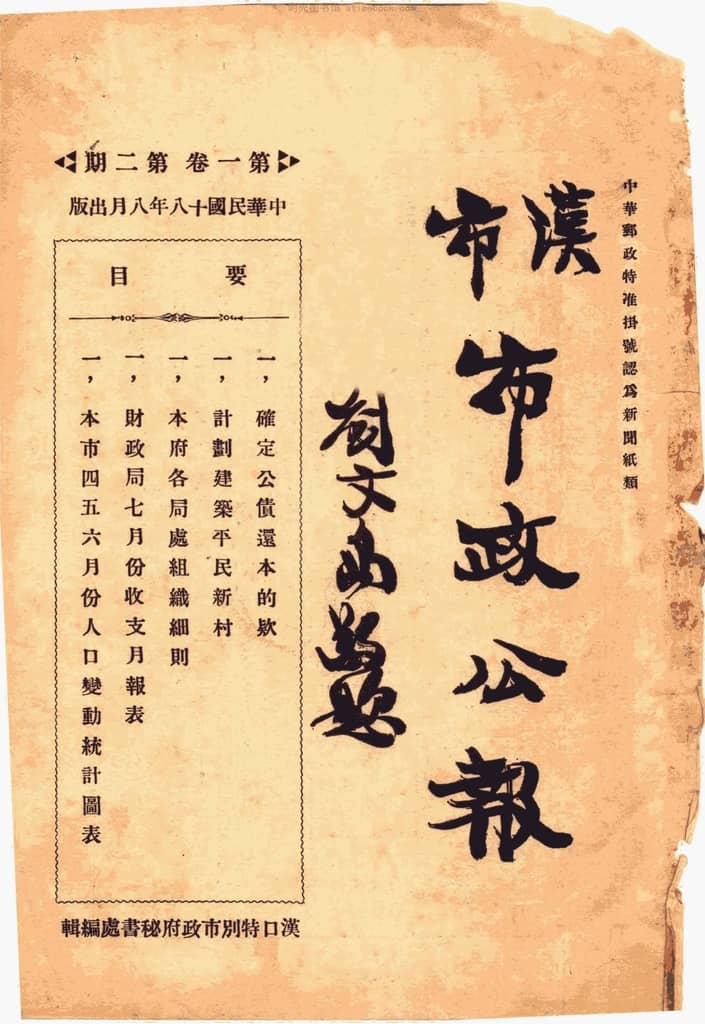 中華郵政特准掛號認爲新聞紙類
漢市
市政公報
劉文島
第一卷 第二期
中華民國十八年八月出版
要目
一，確定公債還本的欵
一，計劃建築平民新村
一，本府各局處組織細則
一，財政局七月份收支月報表
一，本市四五六月份人口變動統計圖表
漢口特別市政府秘書處編輯